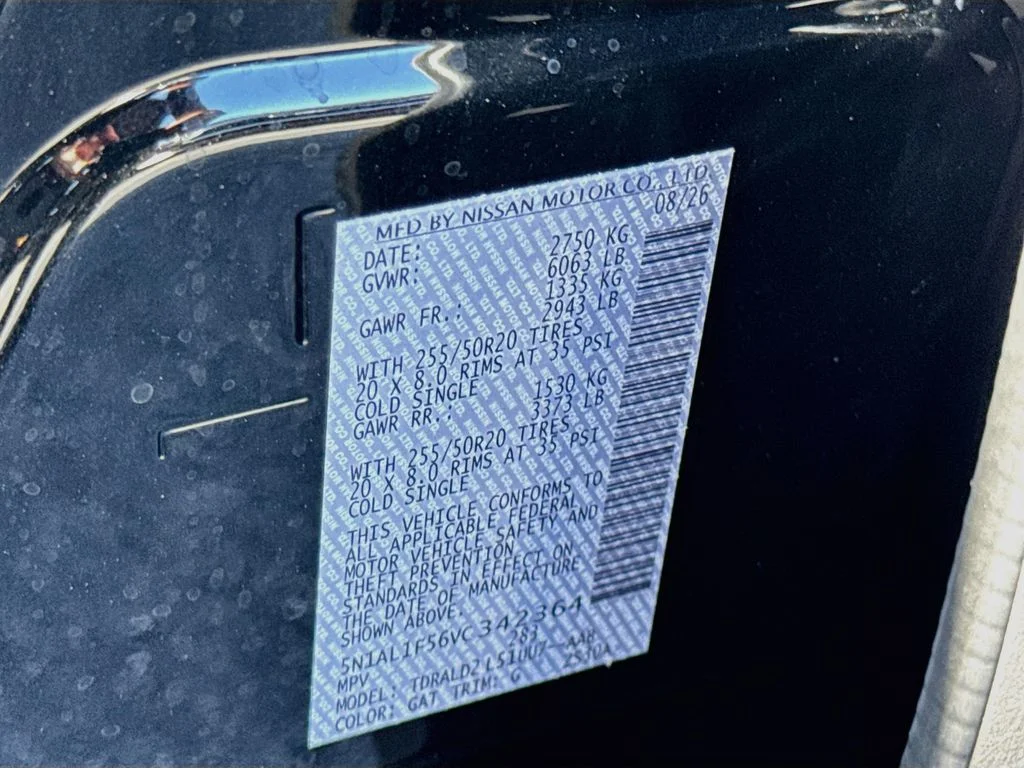 MFD BY NISSAN MOTOR CO., LTD.
DATE: 08/26
GVWR: 2750 KG
6063 LB
GAWR FR.: 1335 KG
2943 LB
WITH 255/50R20 TIRES
20 X 8.0 RIMS AT 35 PSI
COLD SINGLE
GAWR RR.: 1530 KG
3373 LB
WITH 255/50R20 TIRES
20 X 8.0 RIMS AT 35 PSI
COLD SINGLE
THIS VEHICLE CONFORMS TO
ALL APPLICABLE FEDERAL
MOTOR VEHICLE SAFETY AND
THEFT PREVENTION
STANDARDS IN EFFECT ON
THE DATE OF MANUFACTURE
SHOWN ABOVE.
5N1AL1F56VC342364
MPV 283
MODEL: TDRALD2 L51UU7--AAB
COLOR: GAT TRIM: G